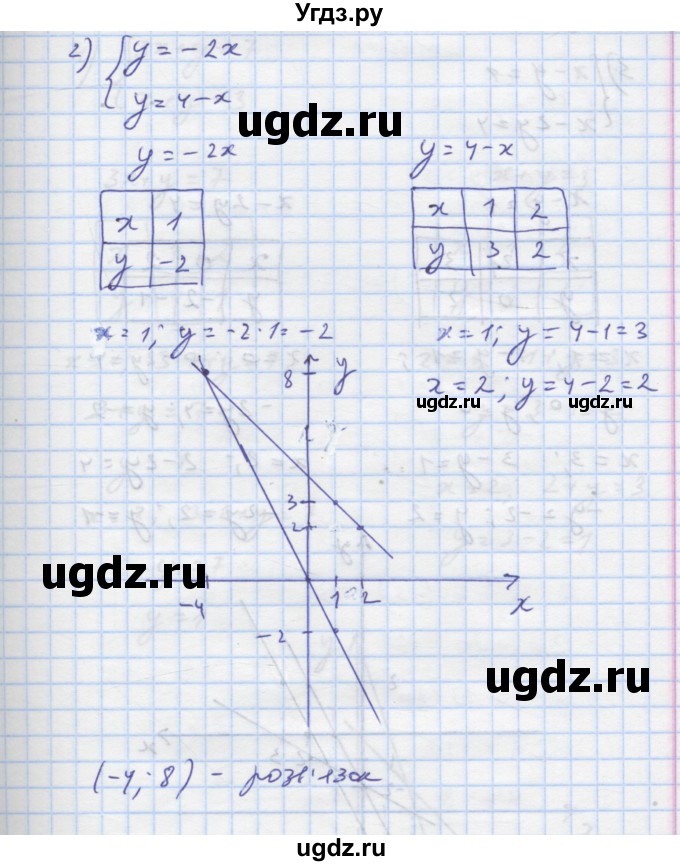 Угдз.ру
2) { y = -2x
y = 4-x
ugdz.ru
y = -2x
y = 4-x
x 1
y -2
x 1 2
y 3 2
x = 1; y = -2·1 = -2
x = 1; y = 4-1 = 3
x = 2; y = 4-2 = 2
ugdz.ru ugdz.ru
8 y
3
2
ugdz.ru
-4 1 2 x
-2
ugdz.ru
(-4; 8) - розв'язок
ugdz.ru